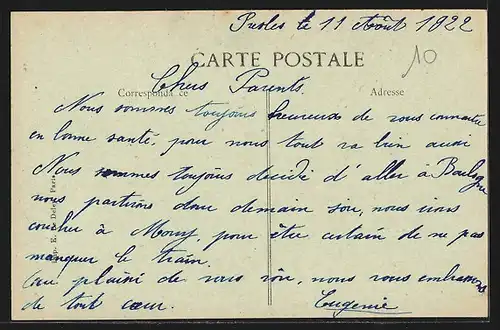 le 11 Août 1922
10
CARTE POSTALE
Correspondance
Adresse
Chers Parents.
Nous sommes toujours heureux de vous connaitre
en bonne santé, pour nous tout va bien aussi
Nous sommes toujours decidé d'aller à Boulogne
nous partirons donc demain soir, nous irons
coucher à Mouy pour être certain de ne pas
manquer le train.
Au plaisir de vous voir, nous vous embrassons
de tout cœur. Eugenie